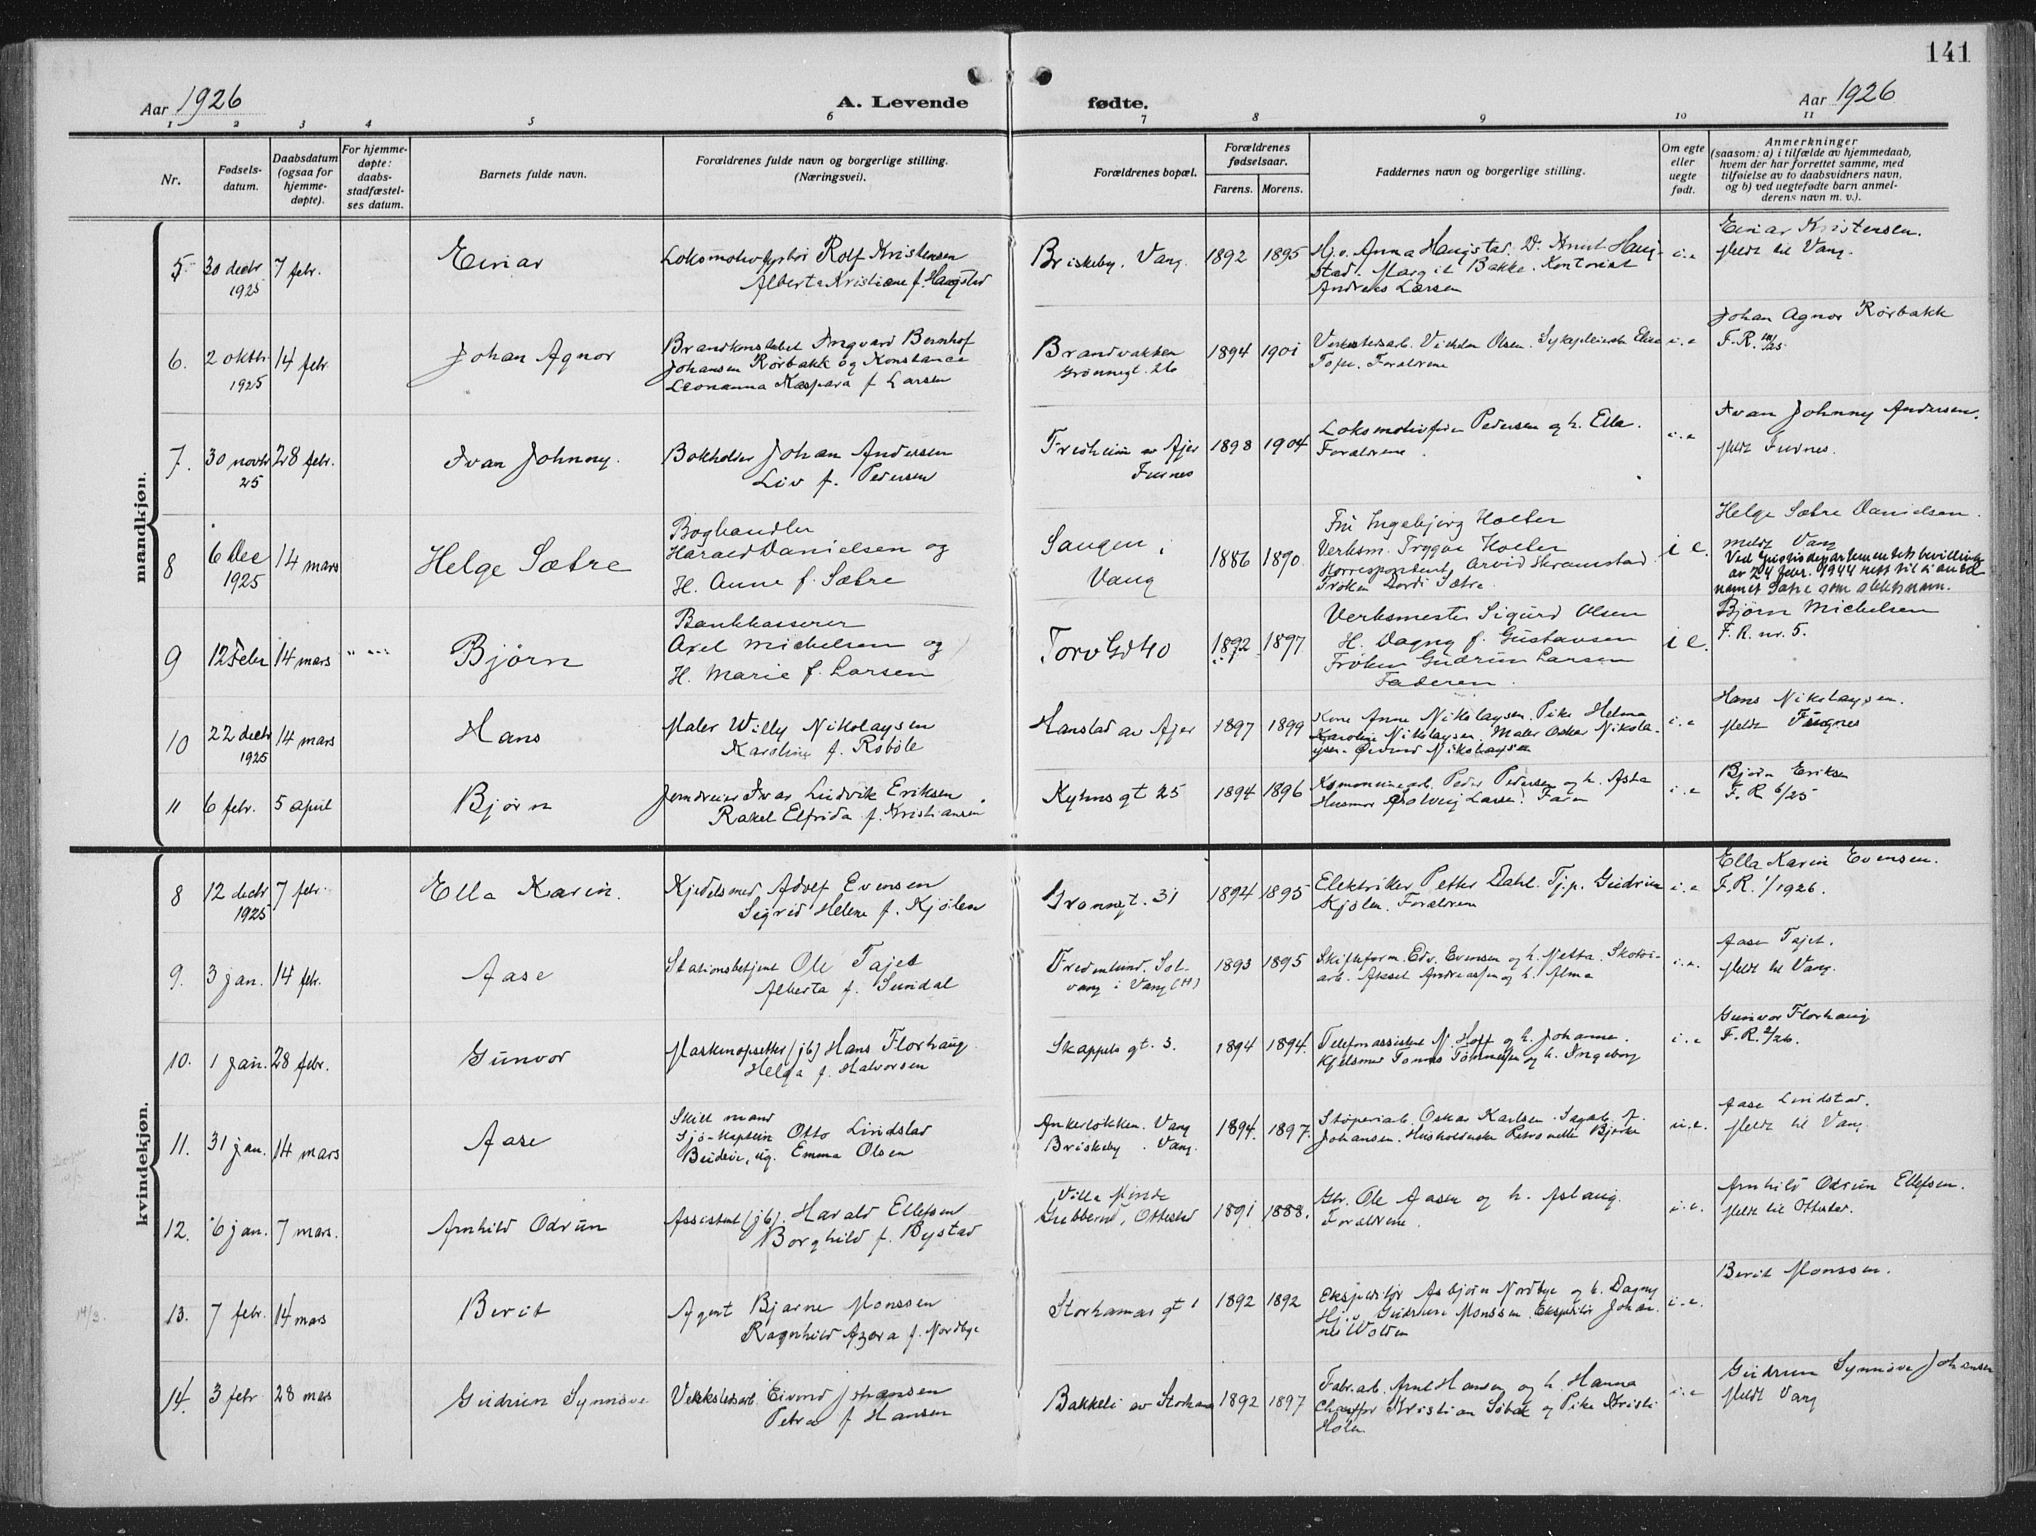 141
Aar 1926
A. Levende
fødte.
Aar 1926
1 2 3 4 5 6 7 8 9 10 11
Nr.
Fødsels-
datum.
Daabsdatum
(ogsaa for
hjemme-
døpte).
For hjemme-
døpte:
daabs-
stadfæstel-
ses datum.
Barnets fulde navn.
Forældrenes fulde navn og borgerlige stilling.
(Næringsvei).
Forældrenes bopæl.
Forældrenes
fødselsaar.
Farens. Morens.
Faddernes navn og borgerlige stilling.
Om egte
eller
uegte
født.
Anmerkninger
(saasom: a) i tilfælde av hjemmedaab,
hvem der har forrettet samme, med
tilføielse av to daabsvidners navn,
og b) ved uegtefødte barn anmel-
derens navn m. v.).
mandkjøn.
5
30 decbr
1925
7 febr.
Einar
Rolf Kristensen
Alberta Kristiane f. Haugstad
Briskeby. Vang.
1892
1895
Hj.v. Anna Haugstad. D. Knut Haug-
stad. Margit Bakke. Kontorist
Andreas Larsen
i.e
Einar Kristensen.
Meldt til Vang.
6.
2 oktbr
1925
14 febr
Johan Agnor
Brandkonstabel Ingvard Bernhof
Johansen Rørbakk og Konstance
Leonanna Kaspara f Larsen
Brandvakten
Grønnegt. 26
1894
1901
Verkstedsarb. Vilhelm Olsen. Sykepleierske
Forældrene
i.e
Johan Agnor Rørbakk
F.R.
7.
30 novbr
25
28 febr.
Ivan Johnny.
Bokholder Johan Andersen
Liv f. Pedersen
Fredheim av Ajer
Furnes
1898
1904
Pedersen og h. Ella.
Forældrene.
i.e
Ivan Johnny Andersen.
Meldt Furnes.
8
6 Dec
1925
14 mars
Helge Sætre
Boghandler
Harald Danielsen og
H. Anne f. Sætre
Sangen i
Vang
1886
1890
Fru Ingebjørg Holter
Verksm. Trygve Holter
Korrespondent Arvid Skramstad
Frøken Dordi Sætre
i e.
Helge Sætre Danielsen.
meldt Vang
Ved Justisdepartementets bevilling
av 24 febr. 1944 rett til å ta
navnet Sætre som slektsnavn.
9
12 Febr
14 mars
" "
Bjørn
Bankkasserer
Axel Michelsen og
H. Marie f. Larsen
Torvgd 40
1892
1897
Verksmester Sigurd Olsen
H. Dagny f. Gustavsen
Frøken Gudrun Larsen
Faderen.
i e.
Bjørn Michelsen
F.R. nr. 5.
10
22 decbr
1925
14 mars
Hans
Maler Willy Nikolaysen
Karoline f. Røbøle
Hanstad av Ajer
1897
1899
Kone Anne Nikolaysen. Pike Helma
Karoline Nikolaysen. Maler Oskar Nikola-
ysen. Øivind Nikolaysen
i.e
Hans Nikolaysen.
Meldt
11
6 febr.
5 april
Bjørn
Jerndreier Ivar Ludvik Eriksen.
Rakel Elfrida f. Kristiansen
Kyhns gt 25
1894
1896
Kommunearb. Peder Pedersen og h. Asta
Husmor Solveig Larsen. Faren
i.e
Bjørn Eriksen
F.R. 6/25
kvindekjøn.
8
12 decbr
1925
7 febr.
Ella Karin.
Kjedelsmed Adolf Evensen
Sigrid Helene f. Kjølen
Grønnegt. 31
1894
1895
Elektriker Petter Dahl. Tjp. Gudrun
Kjølen. Forældrene
i.e
Ella Karin Evensen.
F.R. 1/1926.
9.
3 jan.
14 febr.
Aase
Stationsbetjent Ole Tajet
Alberta f. Sundal
Fredenlund. Sol-
vang i Vang (H)
1893
1895
Skifteform. Edv. Evensen og h. Netta. Skotøi-
arb. Aksel Andreassen og h. Alma
i.e.
Aase Tajet.
Meldt til Vang.
10.
1 jan.
28 febr.
Gunvor
Maskinopsetter (jb) Hans Florhaug
Helga f. Halvorsen
Skappels gt. 3.
1894
1894.
Telefonassistent N. Hoff og h. Johanne.
Kjelsmed Tomas Tønnesen og h. Ingeborg
i.e
Gunvor Florhaug
F.R. 2/26.
11.
31 jan.
14 mars
Aase
Skilt mand
Sjø-kaptein Otto Lindstad
Budeie, ug. Emma Olsen
Ankerløkken. Vang
Briskeby. Vang.
1894.
1897.
Støperiarb. Oskar Karlsen. Sagarb. J.
Johansen. Husholderske Petronelle Bjerke
u.e.
Aase Lindstad.
Meldt til Vang
12.
6 jan.
7 mars.
Arnhild Odrun
Assistent (jb). Harald Ellefsen
Borghild f. Bystad
Villa Minde
Gubberud, Ottestad
1891
1888.
Gbr. Ole Aasen og h. Aslaug.
Forældrene.
i.e.
Arnhild Odrun Ellefsen.
Meldt til Ottestad.
14/3
13.
7 febr.
14 mars
Berit
Agent Bjarne Monssen
Ragnhild Azora f. Nordbye
Storhamar gt 1
1892
1892
Ekspeditør Asbjørn Nordbye og h. Dagny
Hj.v. Gudrun Monssen. Ekspeditør Johan-
nes Wolden
i.e.
Berit Monssen.
14.
3 febr
28 mars
Gudrun Synnøve
Verkstedsarb. Eivind Johansen
Petra f Hansen
Bakkeli av Storhamar
1892
1897
Fabr.arb. Arne Hansen og h. Hanna
Chauffør Kristian Søbak og Pike Kristi
Holen
i.e
Gudrun Synnøve Johansen
Meldt Vang